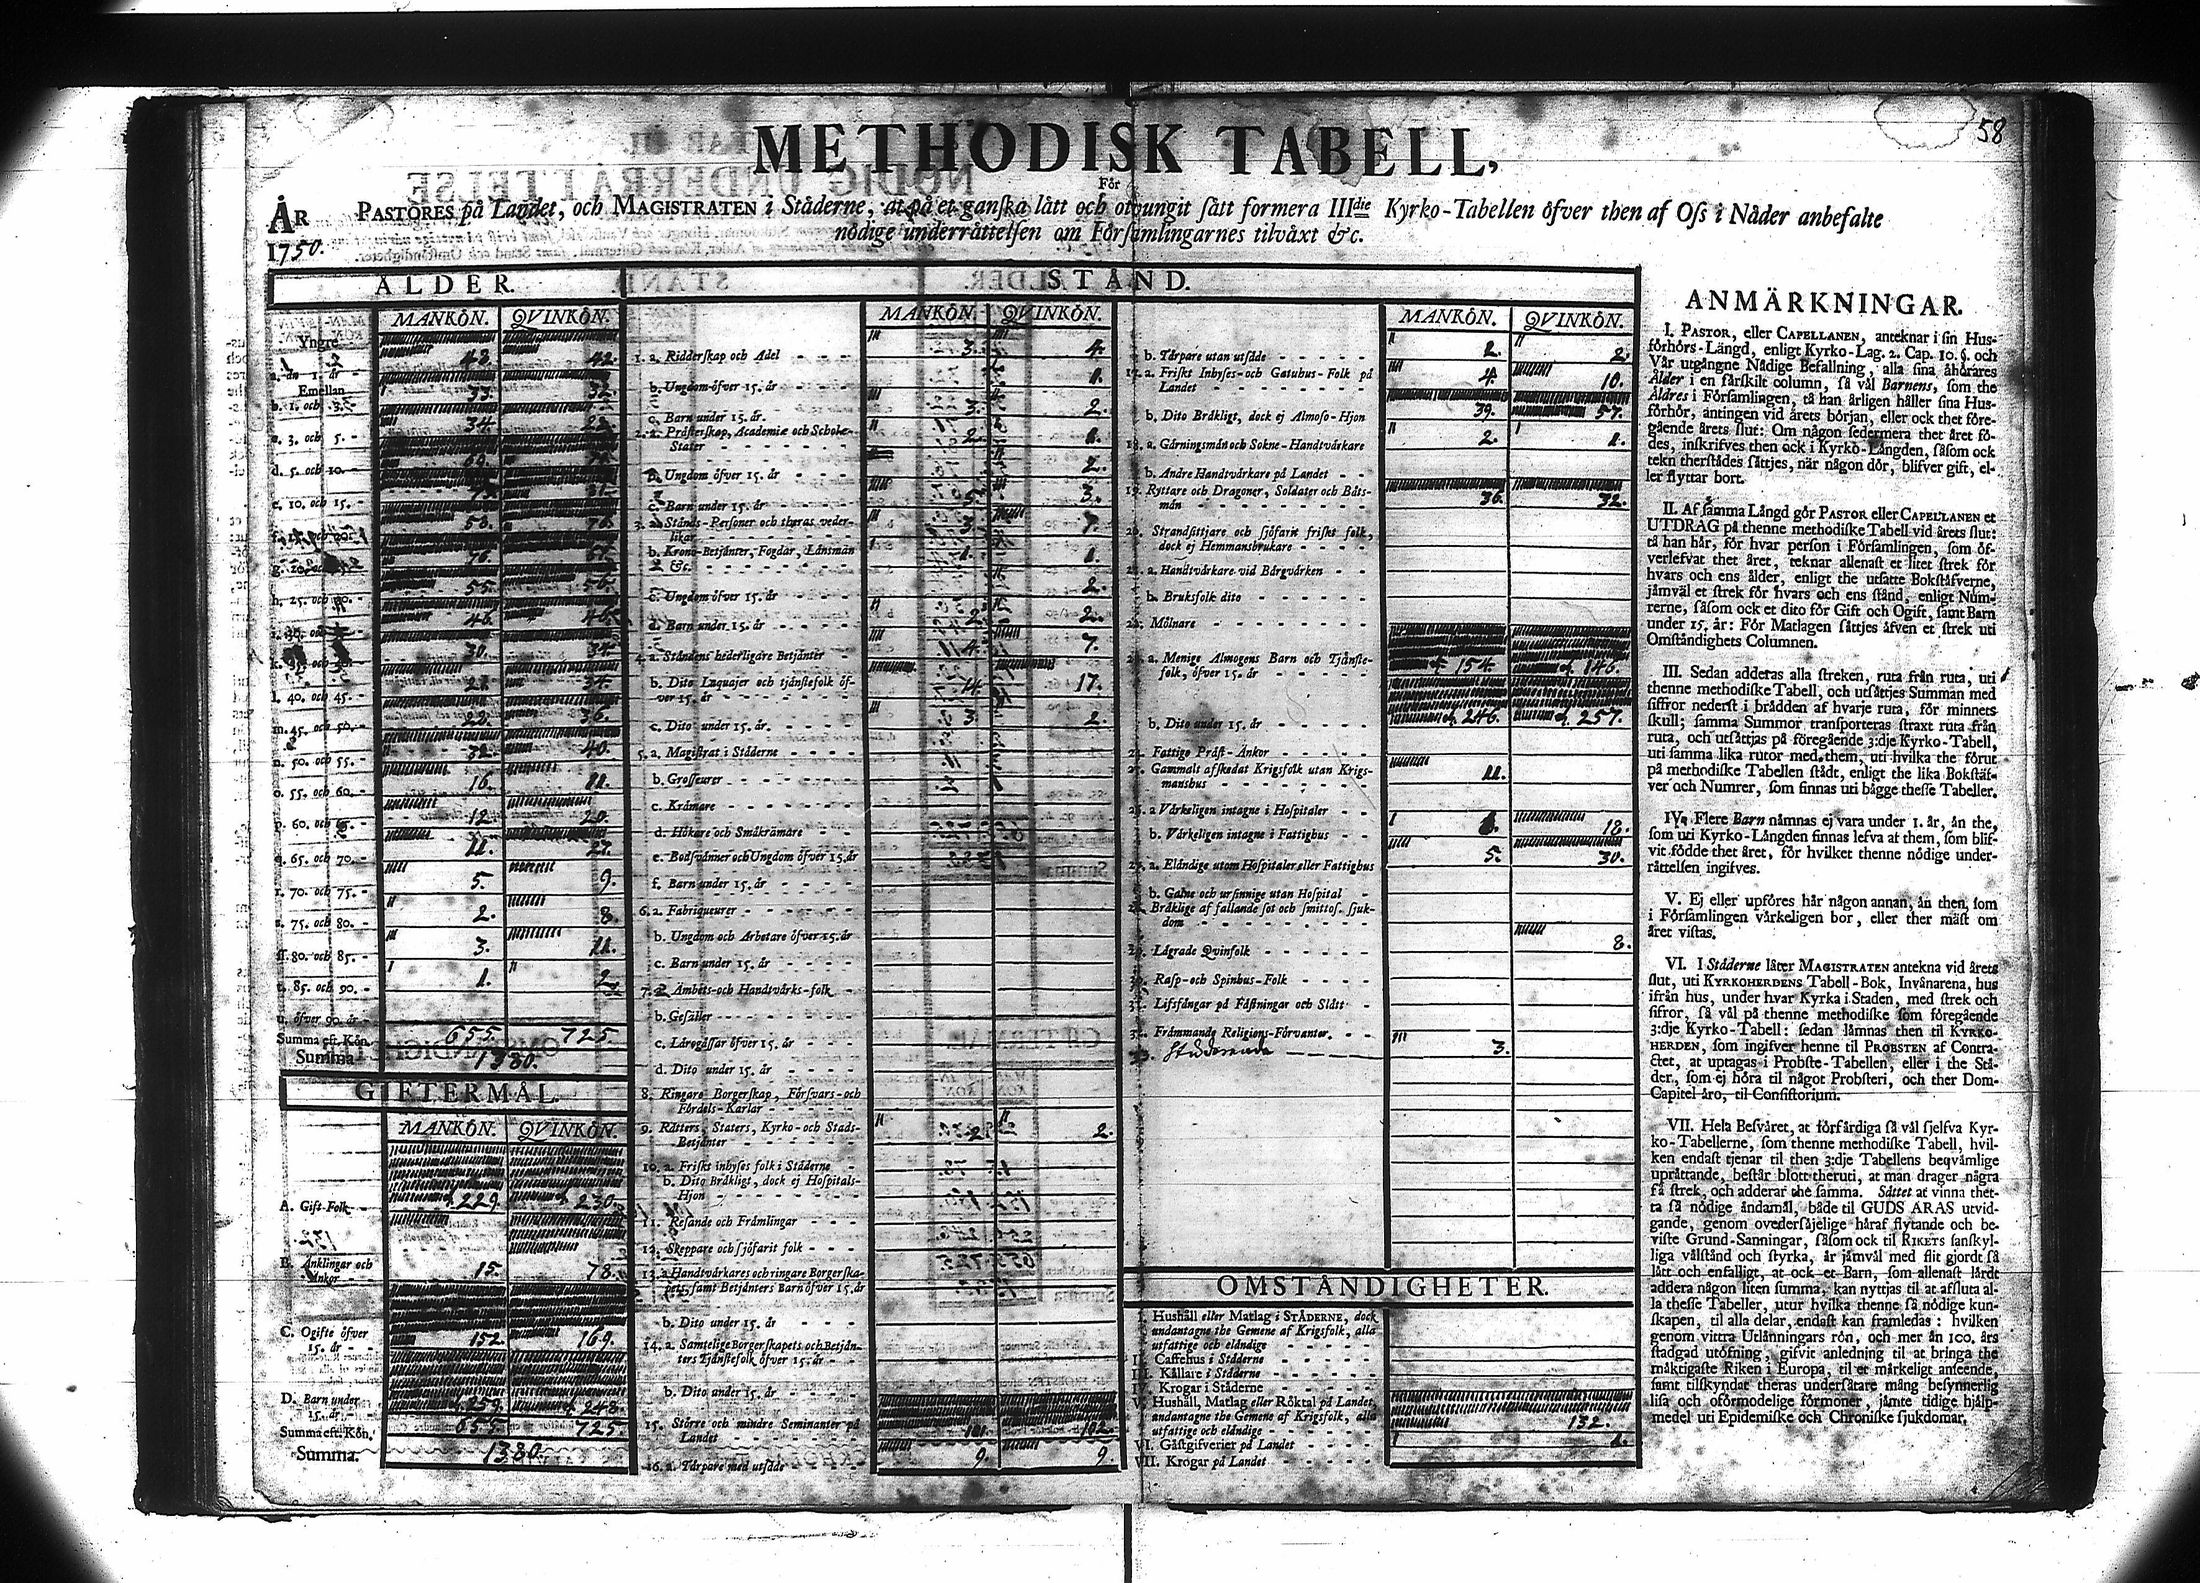 58
METHODISK TABELL,
För
ÅR PASTORES på Landet, och MAGISTRATEN i Städerne, at på et ganska lätt och otvungit sätt formera IIIdie Kyrko-Tabellen öfver then af Oss i Nåder anbefalte
1750. nödige underrättelsen om Församlingarnes tilväxt &c.
ÅLDER.
MANKÖN. QVINKÖN.
Yngre
a. än 1. år - 42. 42.
Emellan
b. 1. och 3. 33. 32.
c. 3. och 5. - 34.
d. 5. och 10. -
e. 10. och 15. -
58.
76.
g. 55. 56.
h. 25. och 30. - 46. 46.
30. 34.
34.
l. 40. och 45. - 22. 36.
m. 45. och 50. - 32. 40.
n. 50. och 55. - 16. 11.
o. 55. och 60. - 12. 20.
p. 60. och 65. 11. 27.
q. 65. och 70. - 5. 9.
r. 70. och 75. - 2. 8.
s. 75. och 80. - 3. 11.
ſſ. 80. och 85. - 1. 2.
t. 85. och 90. -
u. öfver 90. år -
Summa eft. Kön. 655. 725.
Summa 1380.
GIFTERMÅL.
MANKÖN. QVINKÖN.
A. Gift-Folk - 229. 230.
B. Änklingar och
Änkor 15. 78.
C. Ogifte öfver
15. år - - 152. 169.
D. Barn under
15. år - - 259. 248.
Summa eft. Kön. 655. 725.
Summa. 1380.
STÅND.
MANKÖN. QVINKÖN.
1. a. Ridderskap och Adel - - - - 3. 4.
b. Ungdom öfver 15. år - - - 1.
c. Barn under 15. år. - - - - 3. 2.
2. a. Prästerskap, Academiæ och Schole-
Stater - - - - - - - 2. 1.
b. Ungdom öfver 15. år - - - 2.
c. Barn under 15. år - - - - 3.
3. a. Stånds-Personer och theras veder-
likar - - - - - - - 3. 7.
b. Krono-Betjänter, Fogdar, Länsmän
&c. - - - - - - - - 1. 1.
c. Ungdom öfver 15. år - - - 2.
d. Barn under 15. år - - - - 2. 2.
4. a. Ståndens hederligare Betjänter - 4. 7.
b. Dito Laquajer och tjänstefolk öf-
ver 15. år - - - - - - 14. 17.
c. Dito under 15. år. - - - - 3. 2.
5. a. Magistrat i Städerne - - - -
b. Grosseurer - - - - - -
c. Krämare - - - - - - -
d. Hökare och Småkrämare - - -
e. Bodsvänner och Ungdom öfver 15. år
f. Barn under 15. år - - - -
6. a. Fabriqueurer - - - - - -
b. Ungdom och Arbetare öfver 15. år
c. Barn under 15. år - - - -
7. a. Ämbets-och Handtvärks-folk - -
b. Gesäller - - - - - - -
c. Lärogåssar öfver 15. år - - -
d. Dito under 15. år - - - -
8. Ringare Borgerskap, Försvars-och
Fördels-Karlar - - - - -
9. Rätters, Staters, Kyrko-och Stads-
Betjänter - - - - - - 2. 2.
10. a. Friskt inhyses folk i Städerne -
b. Dito Bräkligt, dock ej Hospitals-
Hjon - - - - - - - -
11. Resande och Främlingar - - -
12. Skeppare och sjöfarit folk - - -
13. a. Handtvärkares och ringare Borgerska-
pets, samt Betjänters Barn öfver 15. år
b. Dito under 15. år - - - -
14. a. Samtelige Borgerskapets och Betjän-
ters Tjänstefolk öfver 15. år - -
b. Dito under 15. år - - - -
15. Större och mindre Seminanter på
Landet - - - - - - - 101. 102.
16. a. Tårpare med utsäde 9. 9.
MANKÖN. QVINKÖN.
b. Tårpare utan utsäde - - - - - 2. 2.
17. a. Friskt Inhyses-och Gatuhus-Folk på
Landet - - - - - - - - 4. 10.
b. Dito Bräkligt, dock ej Almoso-Hjon 39. 57.
18. a. Gärningsmän och Sokne-Handtvärkare 2. 1.
b. Andre Handtvärkare på Landet - -
19. Ryttare och Dragoner, Soldater och Båts-
män - - - - - - - - 36. 32.
20. Strandsittjare och sjöfarit friskt folk,
dock ej Hemmansbrukare - - - -
21. a. Handtvärkare vid Bärgvärken - -
b. Bruksfolk dito - - - - - -
22. Mölnare - - - - - - - -
23. a. Menige Almogens Barn och Tjänste-
folk, öfver 15. år - - - - - 154. 146.
b. Dito under 15. år - - - - - 246. 257.
24. Fattige Präst-Änkor - - - - -
25. Gammalt afskedat Krigsfolk utan Krigs-
manshus - - - - - - - 11.
26. a. Värkeligen intagne i Hospitaler - -
b. Värkeligen intagne i Fattighus - - 18.
27. a. Eländige utom Hospitaler eller Fattighus 5. 30.
b. Galne och ursinnige utan Hospital -
28. Bräklige af fallande sot och smittos. sjuk-
dom - - - - - - - -
29. Lägrade Qvinfolk - - - - - 8.
30. Rasp- och Spinhus-Folk - - - -
31. Lifsfångar på Fästningar och Slått -
32. Främmande Religions-Förvanter. - -
33. Studerande - - - 3.
OMSTÄNDIGHETER.
I. Hushåll eller Matlag i STÄDERNE, dock
undantagne the Gemene af Krigsfolk, alla
utfattige och eländige - - - - -
II. Caffehus i Städerne - - - - -
III. Källare i Städerne - - - - -
IV. Krogar i Städerne - - - - -
V. Hushåll, Matlag eller Röktal på Landet,
undantagne the Gemene af Krigsfolk, alla
utfattige och eländige - - - - - 132.
VI. Gästgifverier på Landet - - - - 1.
VII. Krogar på Landet - - - - -
ANMÄRKNINGAR.
I. PASTOR, eller CAPELLANEN, anteknar i sin Hus-
förhörs-Längd, enligt Kyrko-Lag. 2. Cap. 10. §. och
Vår utgångne Nådige Befallning, alla sina åhörares
Ålder i en särskilt column, så väl Barnens, som the
Äldres i Församlingen, tå han årligen håller sina Hus-
förhör, antingen vid årets början, eller ock thet före-
gående årets slut: Om någon sedermera thet året fö-
des, inskrifves then ock i Kyrko-Längden, såsom ock
tekn therstädes sättjes, när någon dör, blifver gift, el-
ler flyttar bort.
II. Af samma Längd gör PASTOR eller CAPELLANEN et
UTDRAG på thenne methodiske Tabell vid årets slut:
tå han här, för hvar person i Församlingen, som öf-
verlefvat thet året, teknar allenast et litet strek för
hvars och ens ålder, enligt the utsatte Bokstäfverne,
jämväl et strek för hvars och ens stånd, enligt Num-
rerne, såsom ock et dito för Gift och Ogift, samt Barn
under 15. år: För Matlagen sättjes äfven et strek uti
Omständighets Columnen.
III. Sedan adderas alla streken, ruta från ruta, uti
thenne methodiske Tabell, och utsättjes Summan med
siffror nederst i brädden af hvarje ruta, för minnets
skull; samma Summor transporteras straxt ruta från
ruta, och utsättjas på föregående 3:dje Kyrko-Tabell,
uti samma lika rutor med them, uti hvilka the förut
på methodiske Tabellen stådt, enligt the lika Bokstäf-
ver och Numrer, som finnas uti bägge thesse Tabeller.
IV. Flere Barn nämnas ej vara under 1. år, än the,
som uti Kyrko-Längden finnas lefva at them, som blif-
vit födde thet året, för hvilket thenne nödige under-
rättelsen ingifves.
V. Ej eller upföres här någon annan, än then, som
i Församlingen värkeligen bor, eller ther mäst om
året vistas.
VI. I Städerne låter MAGISTRATEN antekna vid årets
slut, uti KYRKOHERDENS Tabell-Bok, Invånarena, hus
ifrån hus, under hvar Kyrka i Staden, med strek och
sifror, så väl på thenne methodiske som föregående
3:dje Kyrko-Tabell: sedan lämnas then til KYRKO-
HERDEN, som ingifver henne til PROBSTEN af Contra-
ctet, at uptagas i Probste-Tabellen, eller i the Stä-
der, som ej höra til något Probsteri, och ther Dom-
Capitel äro, til Consistorium.
VII. Hela Besväret, at förfärdiga så väl sjelfva Kyr-
ko-Tabellerne, som thenne methodiske Tabell, hvil-
ken endast tjenar til then 3:dje Tabellens beqvämlige
uprättande, består blott theruti, at man drager några
få strek, och adderar the samma. Sättet at vinna thet-
ta så nödige ändamål, både til GUDS ÄRAS utvid-
gande, genom ovedersäjelige häraf flytande och be-
viste Grund-Sanningar, såsom ock til RIKETS sanskyl-
liga välstånd och styrka, är jämväl med flit gjordt så
lätt och enfalligt, at ock et Barn, som allenast lärdt
addera någon liten summa, kan nyttjas til at afsluta al-
la thesse Tabeller, utur hvilka thenne så nödige kun-
skapen, til alla delar, endast kan framledas: hvilken
genom vittra Utlänningars rön, och mer än 100. års
stadgad utöfning, gifvit anledning til at bringa the
mäktigaste Riken i Europa, til et märkeligt anseende,
samt tilskyndat theras undersåtare mång besynnerlig
lisa och oförmodelige förmoner, jämte tidige hjälp-
medel uti Epidemiske och Chroniske sjukdomar.